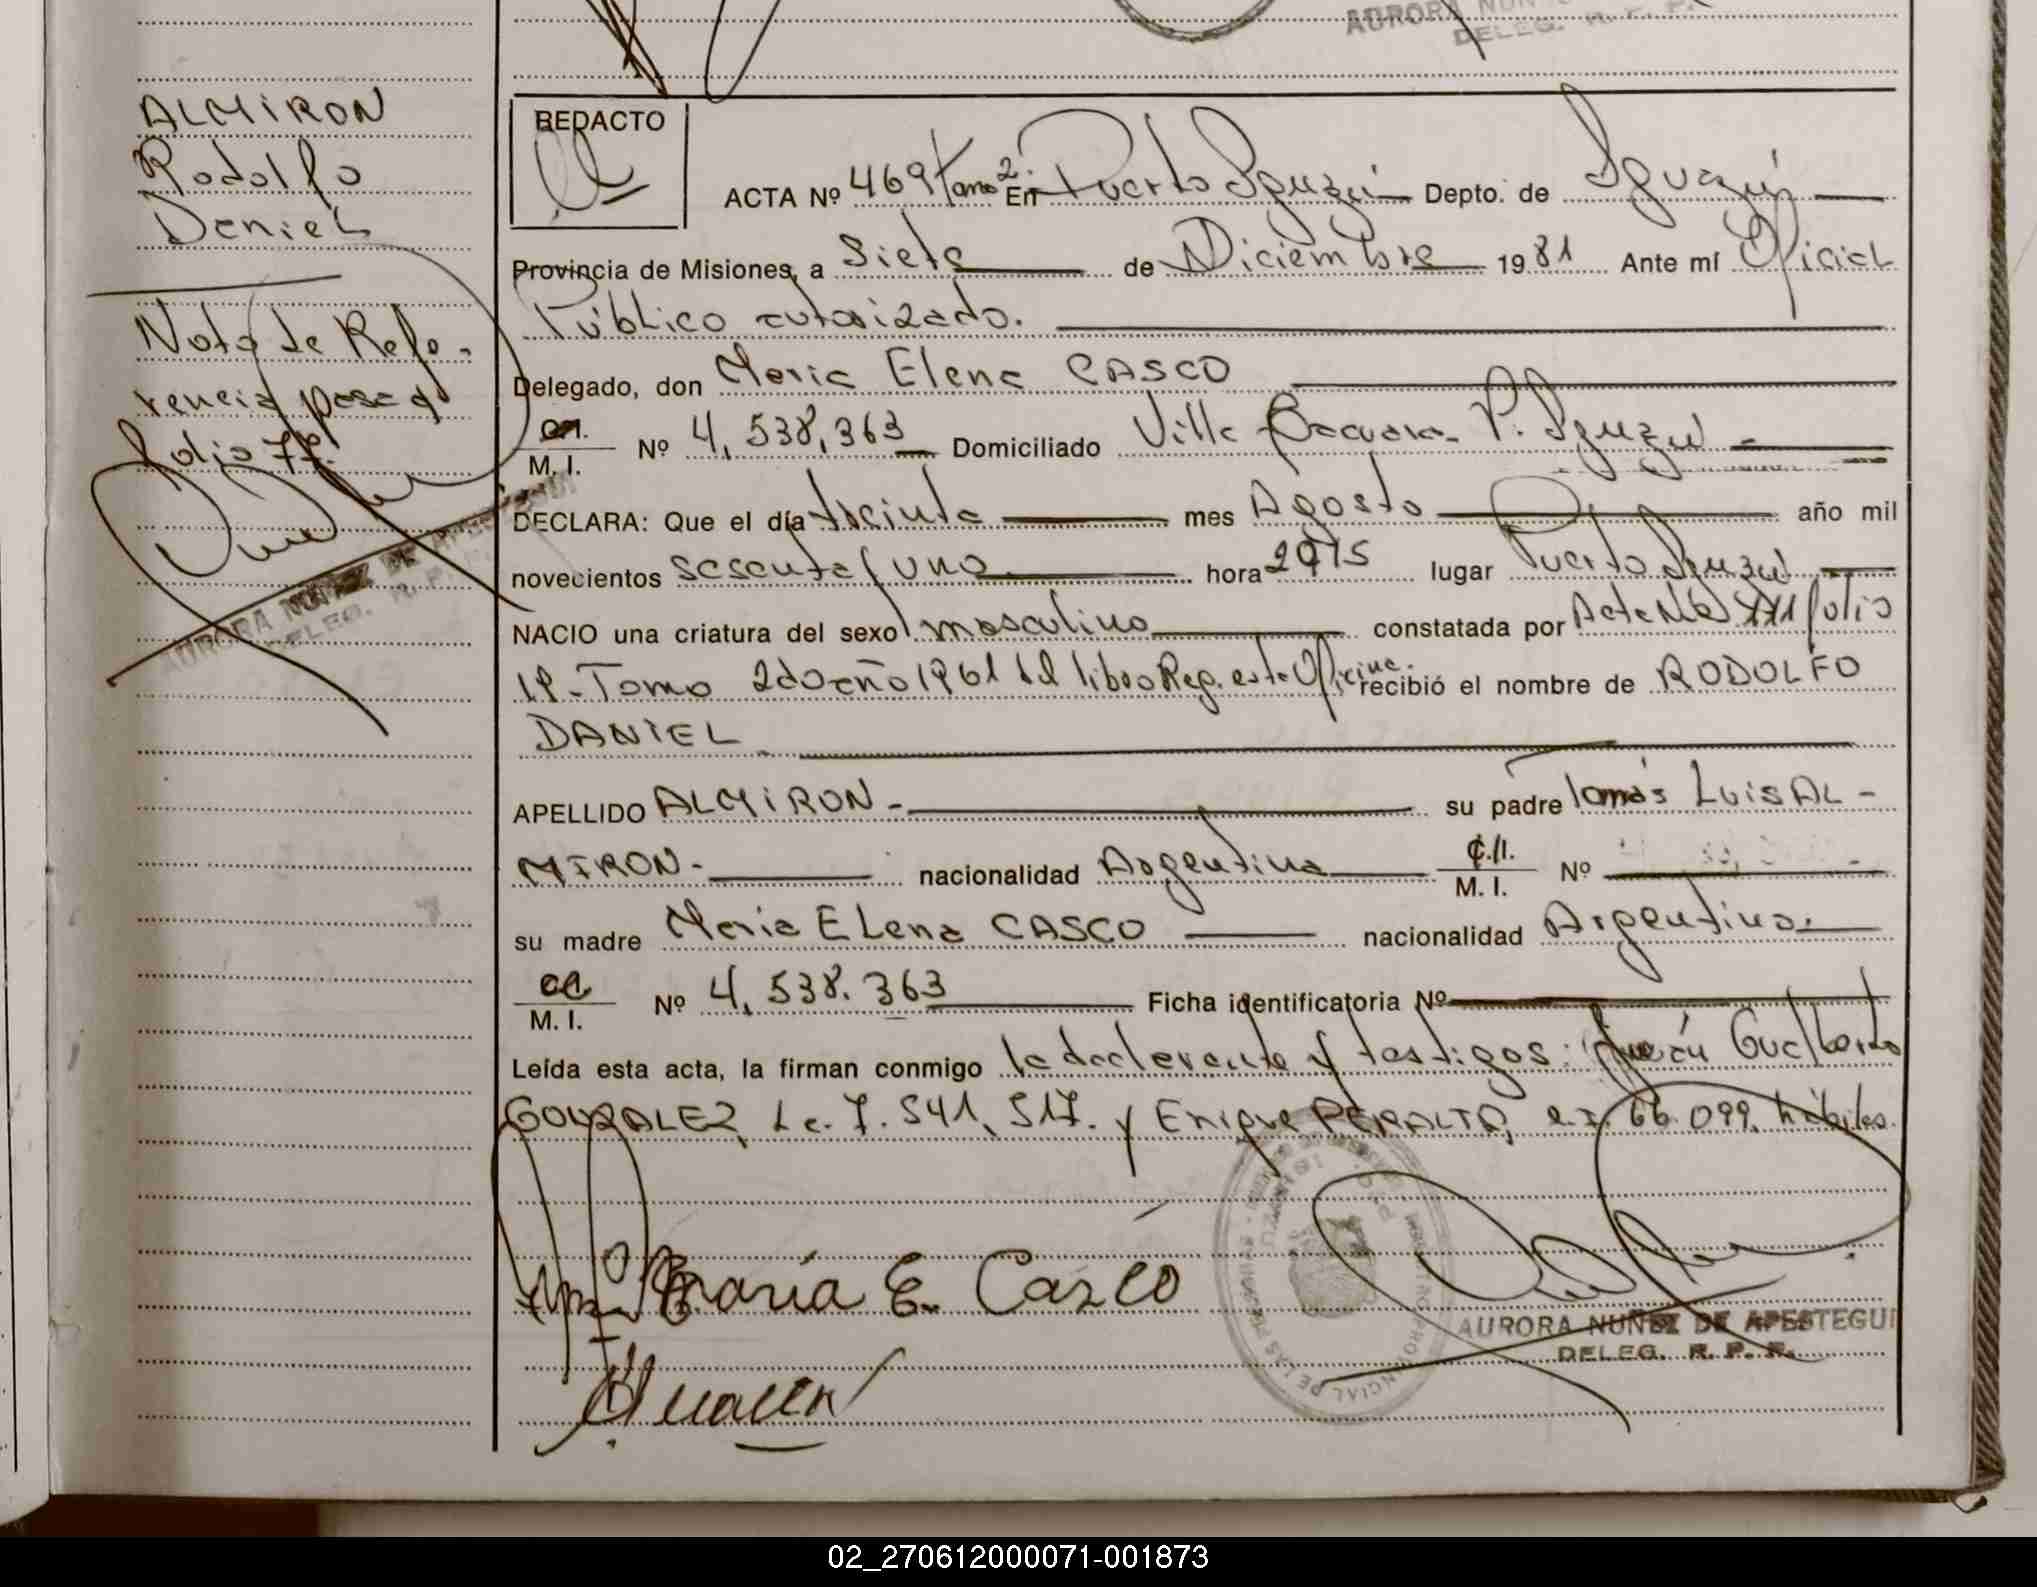 AURORA NUÑ
DELEG. R. P. P.
ALMIRON
Rodolfo
Daniel
Nota de Refe-
rencia pasad
folio 77.
AURORA NUÑEZ DE APESTEGUI
DELEG. R. P.
REDACTO
ACTA Nº 469 tomo 2. En Puerto Iguazú Depto. de Iguazú
Provincia de Misiones, a Siete de Diciembre 1981 Ante mí Oficial
Público autorizado.
Delegado, don Maria Elena CASCO
M. I. Nº 4,538,363 Domiciliado Villa P. Iguazú
DECLARA: Que el día treinta mes Agosto año mil
novecientos sesenta y uno hora 2015 lugar Puerto Iguazú
NACIO una criatura del sexo masculino constatada por Acta folio
19-Tomo 2do año 1961 del libro Reg. esta Oficina. recibió el nombre de RODOLFO
DANIEL
APELLIDO ALMIRON- su padre Tomás Luis AL-
MIRON- nacionalidad Argentina C.I. M. I. Nº
su madre Maria Elena CASCO nacionalidad Argentina.
M. I. Nº 4,538.363 Ficha identificatoria Nº
Leída esta acta, la firman conmigo la declarante y testigos: Gualberto
GONZALEZ, L e. 7.541,517. y Enrique PERALTA, 66.099. hábiles
María E. Casco
AURORA NUÑEZ DE APESTEGUI
DELEG. R. P. P.
02_270612000071-001873